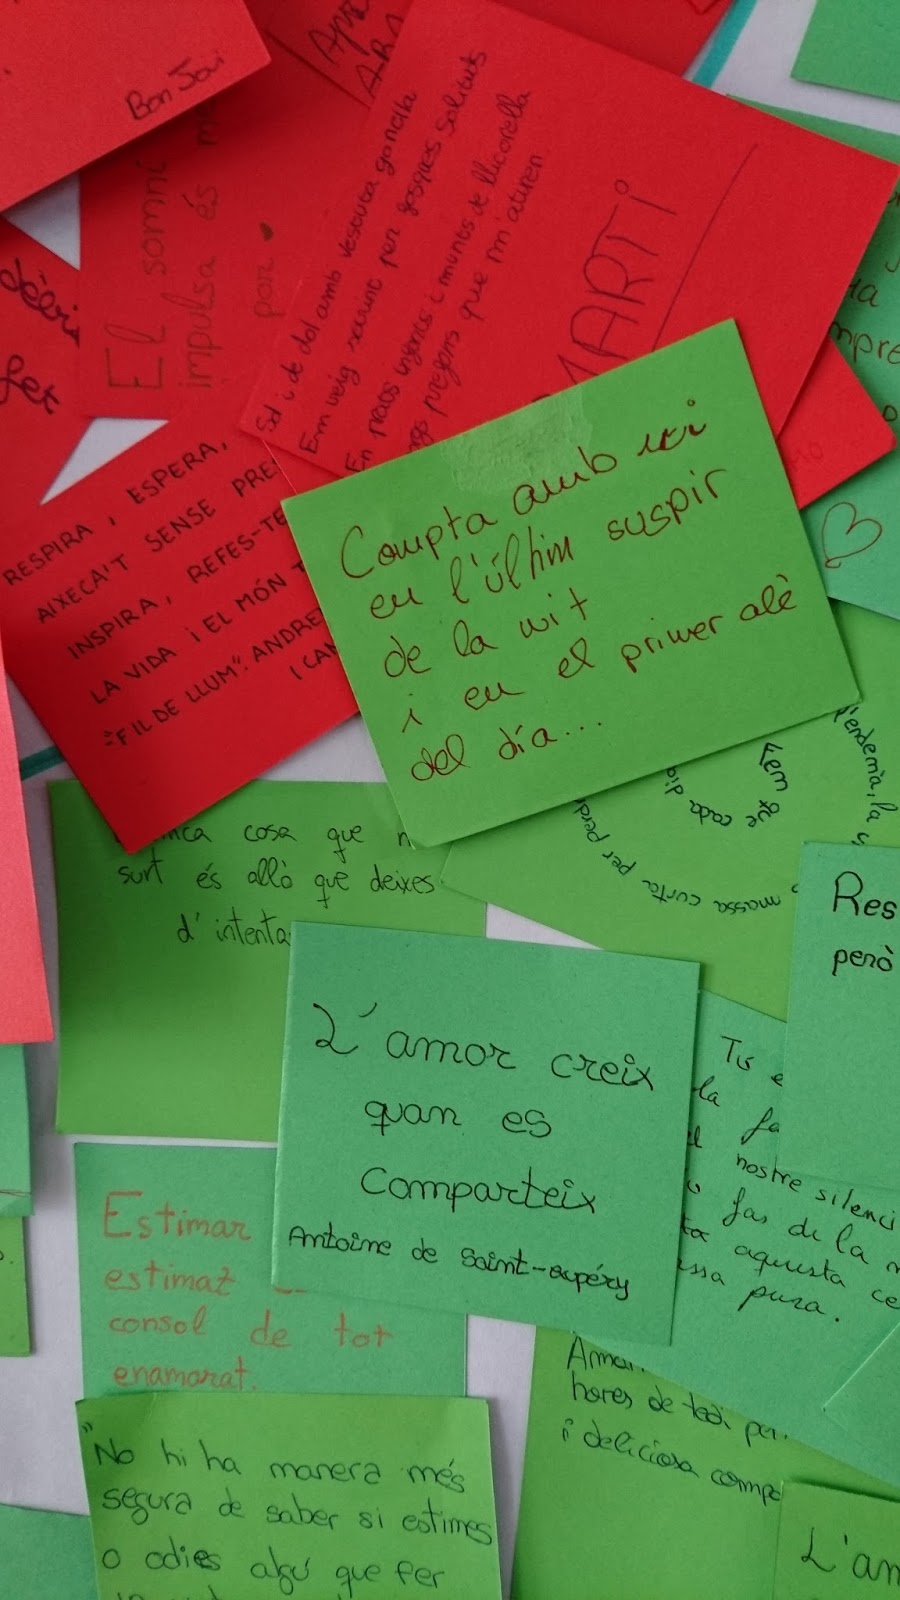 Bon Jovi
El somni
impulsa és
por.
Sol i de dol amb vestuta gonella
Em veig sovint per fosques solituds
En prats ignots i munts de llicorella
gorgs pregons que m'aturen
MARTÍ
RESPIRA, ESPERA,
AIXECA'T SENSE PRE
INSPIRA, REFES-TE
LA VIDA I EL MÓN T
"FIL DE LLUM". ANDREU
Compta amb mi
en l'últim suspir
de la nit
i en el primer alè
del día...
l'endemà, la
massa curta per perd
Fem que cada dia
cosa que no
surt és allò que deixes
d'intenta
Res
però
L'amor creix
quan es
comparteix
Antoine de Saint-exupéry
Tu e
la fo
nostre silenci
fas de la
aquesta ce
pura.
Estimar
estimat
consol de tot
enamorat.
Amar
hores de tedi per
i deliciosa comp
"No hi ha manera més
segura de saber si estimes
o odies algú que fer
L'am